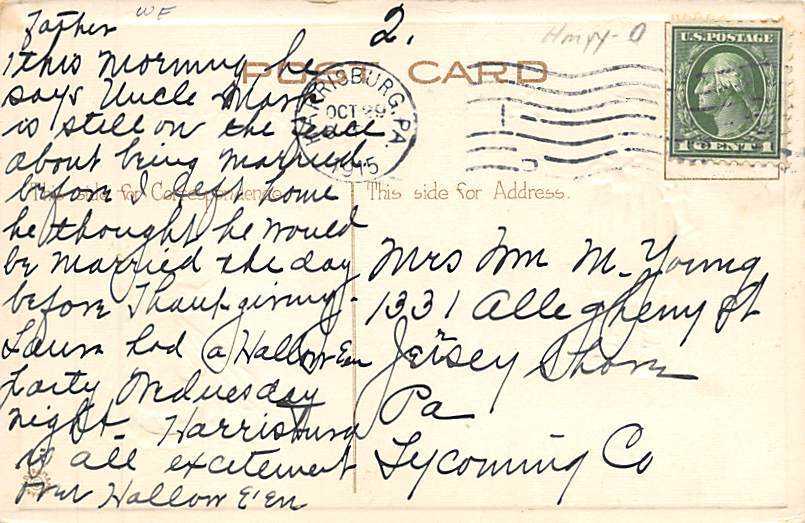 Father
this morning he
says Uncle Mark
is still on the
about being married.
before I left home
he thought he would
be married the day
before Thanksgiving -
Laura had a Hallow Een
Party Wednesday
night. Harrisburg
is all excitement
over Hallow E'en
2.
POST CARD
HARRISBURG, PA.
OCT 29
1915
U.S. POSTAGE
1 CENT 1
This side for Correspondence.
This side for Address.
Mrs Wm M. Young
1331 Allegheny St
Jersey Shore
Pa
Lycoming Co